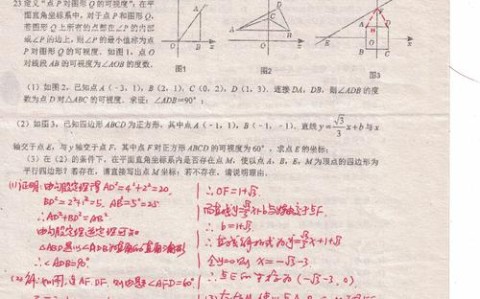 23.定义“点P对图形Q的可视度”:在平
面直角坐标系中,对于点P和图形Q,
若图形Q上所有的点都在∠P的内部
或∠P的边上,则∠P的最小值称为点
P对图形Q的可视度.如图1,点O
对线段AB的可视度为∠AOB的度数.
图1
图2
图3
(1)如图2,已知点A(-3,1),B(2,1),C(0,2),D(1,3),连接DA、DB,则∠ADB的度
数为点D对△ABC的可视度.求证:∠ADB=90°;
(2)如图3,已知四边形ABCD为正方形,其中点A(-1,1),B(-1,-1),直线y=√3/3x+b与x
轴交于点E,与y轴交于点F,其中点F对正方形ABCD的可视度为60°,求点E的坐标;
(3)在(2)的条件下,在平面直角坐标系内是否存在点M,使以点A、B、E、M为顶点的四边形为
平行四边形?若存在,请直接写出点M坐标;若不存在,请说明理由.
(1)证明:由勾股定理得AD²=4²+2²=20,
BD²=2²+1²=5, AB²=5²=25
∴AD²+BD²=AB²
由勾股定理逆定理可知
∴∠ADB=90°
∴OF=1+√3.
∴b=1+√3
令y=0则x=-√3-3
(-√3-3, 0)